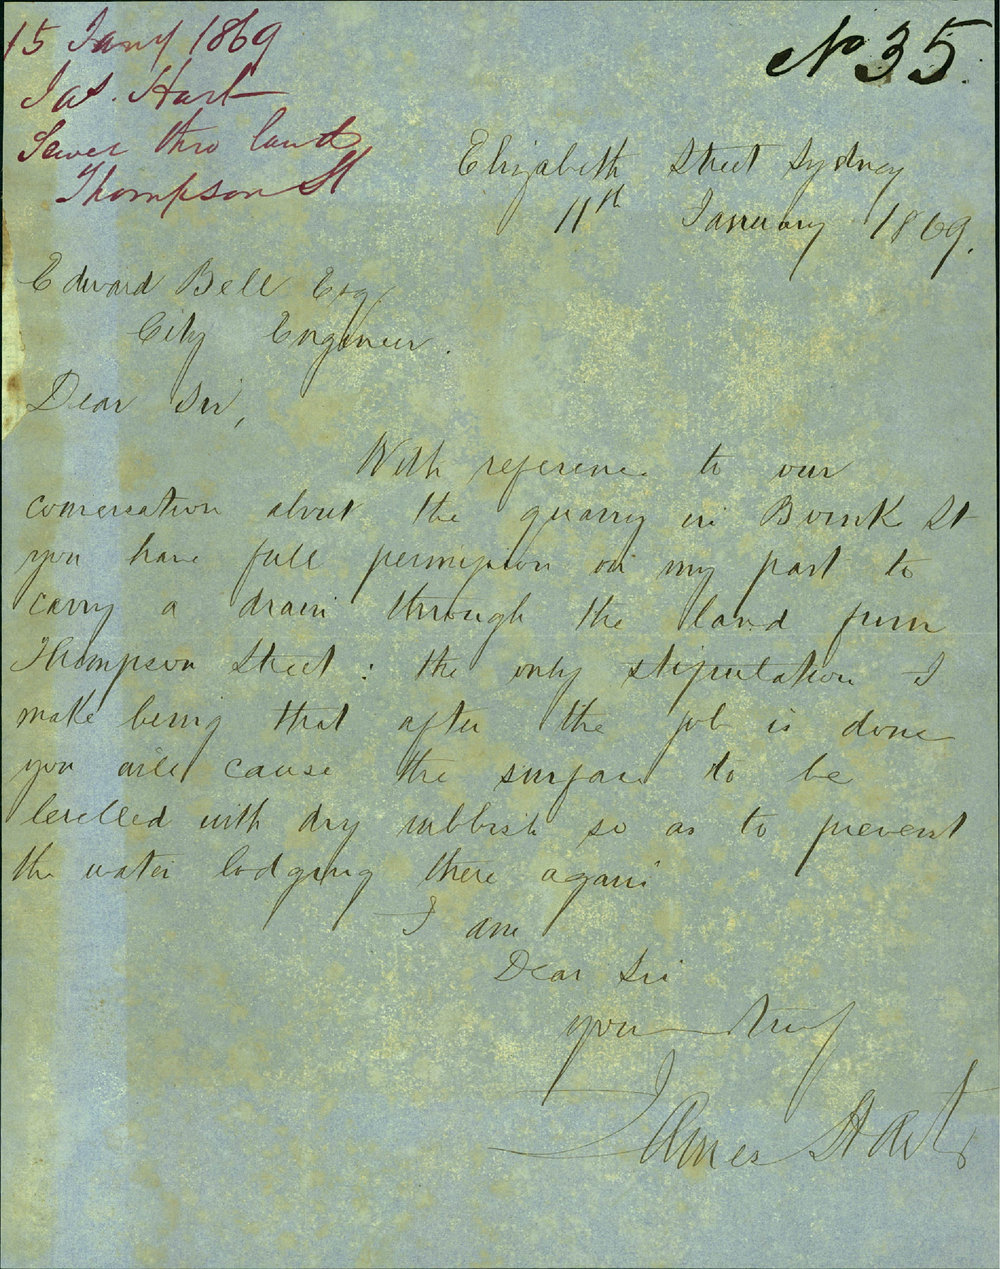 15 Jany 1869
Jas. Hart
Sewer thro land
Thompson St
No 35.
Elizabeth Street Sydney
11th January 1869.
Edward Bell Esq
City Engineer.
Dear Sir,
With reference to our
conversation about the quarry in Bourke St
you have full permission on my part to
carry a drain through the land from
Thompson Street: the only stipulation I
make being that after the job is done
you will cause the surface to be
levelled with dry rubbish so as to prevent
the water lodging there again
I am
Dear Sir
yours truly
James Hart